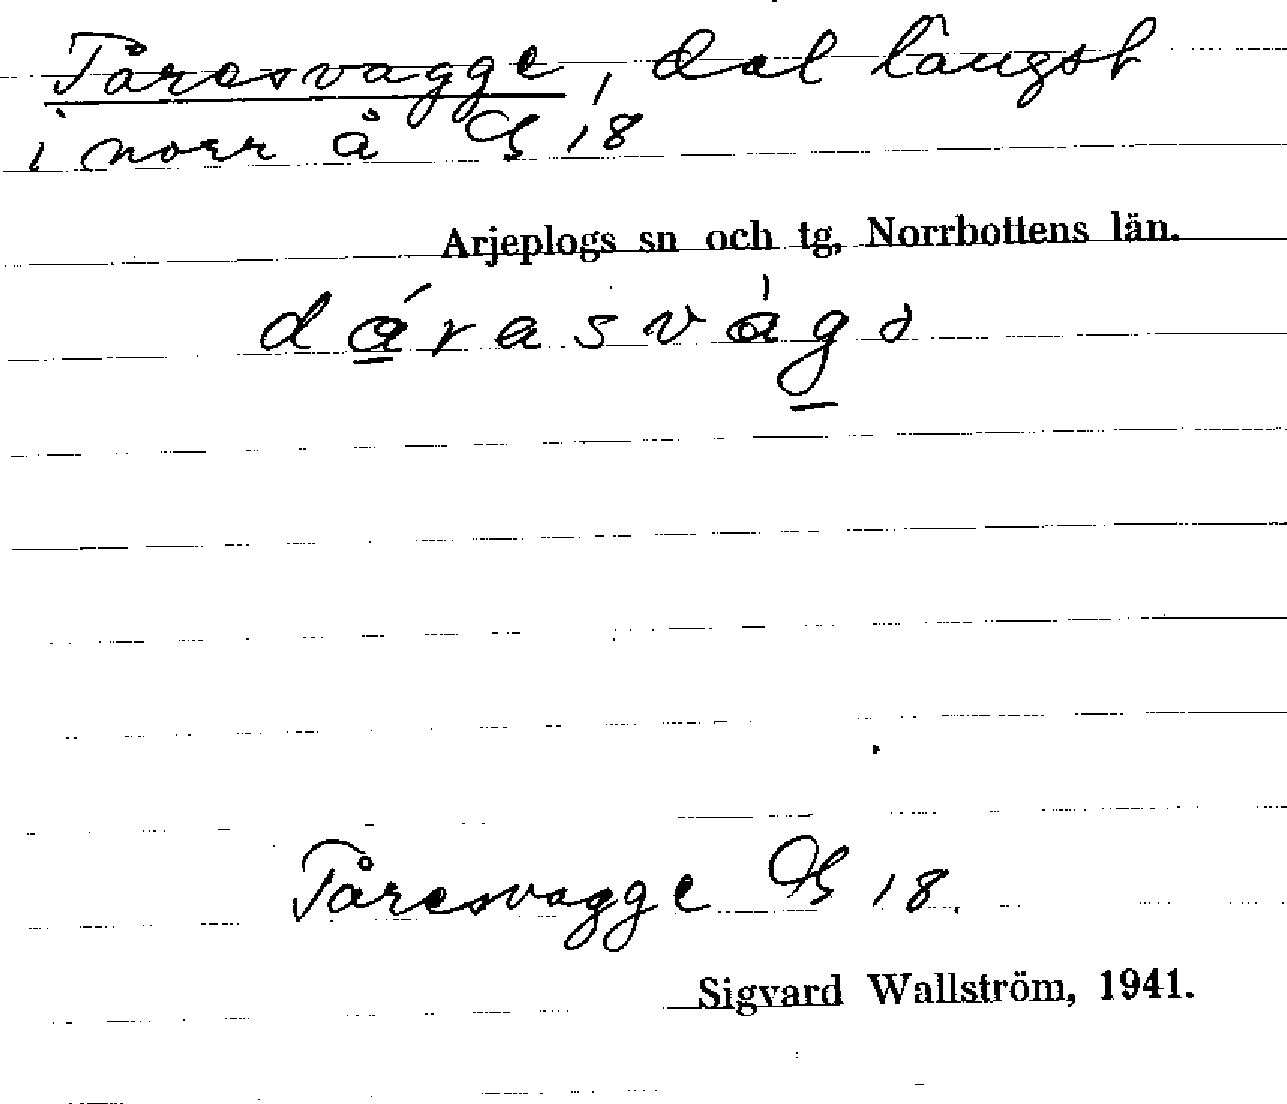 Tåresvagge, dal längst
i norr å G 18
Arjeplogs sn och tg, Norrbottens län.
dárasvág
Tåresvagge G 18.
Sigvard Wallström, 1941.